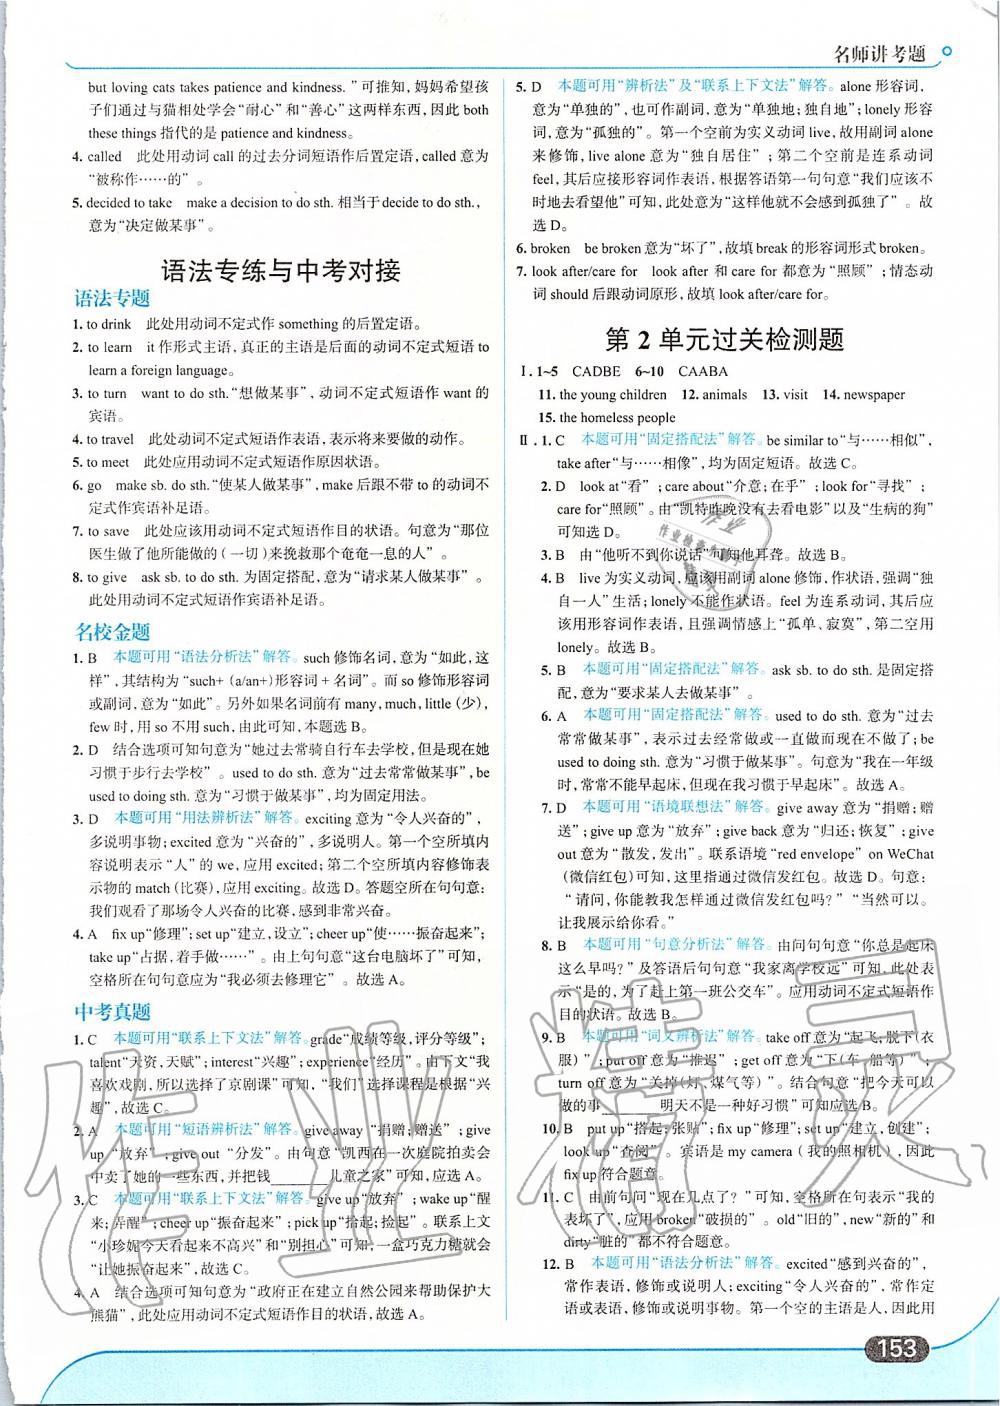 名师讲考题
but loving cats takes patience and kindness. ”可推知, 妈妈希望孩
子们通过与猫相处学会“耐心”和“善心”这两样东西, 因此 both
these things 指代的是 patience and kindness。
4. called 此处用动词 call 的过去分词短语作后置定语, called 意为
“被称作……的” 。
5. decided to take make a decision to do sth. 相当于 decide to do sth.,
意为“决定做某事”。
语法专练与中考对接
语法专题
1. to drink 此处用动词不定式作 something 的后置定语。
2. to learn it 作形式主语, 真正的主语是后面的动词不定式短语 to
learn a foreign language。
3. to turn want to do sth. “想做某事”, 动词不定式短语作 want 的
宾语。
4. to travel 此处动词不定式短语作表语, 表示将来要做的动作。
5. to meet 此处应用动词不定式短语作原因状语。
6. go make sb. do sth. “使某人做某事”, make 后跟不带 to 的动词不
定式作宾语补足语。
7. to save 此处应该用动词不定式短语作目的状语。句意为“那位
医生做了他所能做的 ( 一切 ) 来挽救那个奄奄一息的人” 。
8. to give ask sb. to do sth. 为固定搭配, 意为“请求某人做某事” 。
此处用动词不定式短语作宾语补足语。
名校金题
1. B 本题可用“语法分析法”解答。such 修饰名词, 意为“如此, 这
样”, 其结构为“such+ (a/an+)形容词 + 名词”。而 so 修饰形容词
或副词, 意为“如此”。另外如果名词前有 many, much, little (少),
few 时, 用 so 不用 such, 由此可知, 本题选 B。
2. D 结合选项可知句意为“她过去常骑自行车去学校, 但是现在她
习惯于步行去学校” 。used to do sth. 意为“过去常常做某事”, be
used to doing sth. 意为“习惯于做某事”, 均为固定用法。
3. D 本题可用“用法辨析法”解答。exciting 意为“令人兴奋的”,
多说明事物; excited 意为“兴奋的”, 多说明人。第一个空所填内
容说明表示“人”的 we, 应用 excited; 第二个空所填内容修饰表
示物的 match (比赛), 应用 exciting。故选 D。答题空所在句句意:
我们观看了那场令人兴奋的比赛, 感到非常兴奋。
4. A fix up“修理”; set up“建立, 设立”; cheer up“使……振奋起来”;
take up“占据, 着手做……” 。由上句句意“这台电脑坏了”可知,
空格所在句句意应为“我必须去修理它” 。故选 A。
中考真题
1. C 本题可用“联系上下文法”解答。grade“成绩等级, 评分等级”;
talent“天资, 天赋”; interest“兴趣”; experience“经历” 。由下文“我
喜欢戏剧, 所以选择了京剧课”可知, “我们”选择课程是根据“兴
趣”, 故选 C。
2. A 本题可用“短语辨析法”解答。give away “捐赠; 赠送” ; give
up “放弃” ; give out “分发” 。由句意“凯西在一次庭院拍卖会
中卖了她的一些东西, 并把钱________儿童之家”可知, 应选 A。
3. C 本题可用“联系上下文法”解答。give up“放弃” ; wake up“醒
来; 弄醒” ; cheer up“振奋起来” ; pick up“拾起; 捡起” 。联系上文
“小珍妮今天看起来不高兴”和“别担心”可知, 一盒巧克力糖就会
“让她振奋起来”, 故选 C。
4. A 结合选项可知句意为“政府正在建立自然公园来帮助保护大
熊猫”, 此处应用动词不定式短语作目的状语, 故选 A。
5. D 本题可用“辨析法”及“联系上下文法”解答。alone 形容词,
意为“单独的”, 也可作副词, 意为“单独地; 独自地”; lonely 形容
词, 意为“孤独的”。第一个空前为实义动词 live, 故用副词 alone
来修饰, live alone 意为“独自居住” ; 第二个空前是连系动词
feel, 其后应接形容词作表语, 根据答语第一句句意“我们应该不
时地去看望他”可知, 此处意为“这样他就不会感到孤独了” 。故
选 D。
6. broken be broken 意为“坏了”, 故填 break 的形容词形式 broken。
7. look after/care for look after 和 care for 都意为“照顾” ; 情态动
词 should 后跟动词原形, 故填 look after/care for。
第 2 单元过关检测题
Ⅰ. 1~5 CADBE 6~10 CAABA
11. the young children 12. animals 13. visit 14. newspaper
15. the homeless people
Ⅱ . 1. C 本题可用“固定搭配法”解答。be similar to“与……相似”,
take after“与……相像”, 均为固定短语。故选 C。
2. D look at“看” ; care about“介意; 在乎” ; look for“寻找” ;
care for“照顾”。由“凯特昨晚没有去看电影”以及“生病的狗”
可知选 D。
3. B 由“他听不到你说话”可知他耳聋。故选 B。
4. B live 为实义动词, 应该用副词 alone 修饰, 作状语, 强调“独
自一人”生活; lonely 不能作状语。feel 为连系动词, 其后应
该用形容词作表语, 且强调情感上“孤单、寂寞”, 第二空用
lonely。故选 B。
5. B 本题可用“固定搭配法”解答。ask sb. to do sth. 是固定搭
配, 意为“要求某人去做某事” 。
6. A 本题可用“固定搭配法”解答。used to do sth. 意为“过去
常常做某事”, 表示过去经常做或一直做而现在不做了; be
used to doing sth. 意为“习惯于做某事”。句意为“我在一年级
时, 常常不能早起床, 但现在我习惯于早起床”。故选 A。
7. D 本题可用“语境联想法”解答。give away 意为“捐赠; 赠
送” ; give up 意为“放弃” ; give back 意为“归还; 恢复” ; give
out 意为“散发, 发出”。联系语境“red envelope” on WeChat
(微信红包)可知, 这里指通过微信发红包。故选 D。句意:
“请问, 你能教我怎样通过微信发红包吗? ” “当然可以。
让我展示给你看。”
8. B 本题可用“句意分析法”解答。由问句句意“你总是起床
这么早吗? ”及答语后句句意“我家离学校远”可知, 此处表
示的是“是的, 为了赶上第一班公交车”。应用动词不定式短语作
目的状语。故选 B。
9. B 本题可用“词义辨析法”解答。take off 意为“起飞; 脱下(衣
服)” ; put off 意为“推迟” ; get off 意为“下(车、船等)” ;
turn off 意为“关掉(灯、煤气等)” 。结合句意“把今天可以
做的事________明天不是一种好习惯”可知应选 B。
10. B put up“搭起; 张贴”; fix up“修理”; set up“建立, 创建”;
look up“查阅” 。宾语是 my camera (我的照相机), 因此
fix up 符合题意。
11. C 由前句问“现在几点了? ”可知, 空格所在句表示“我的
表坏了”, 应用 broken“破损的” 。old“旧的”, new“新的”和
dirty“脏的”都不符合题意。
12. B 本题可用“语法分析法”解答。excited“感到兴奋的”,
常作表语, 修饰或说明人; exciting “令人兴奋的”, 常作定
语或表语, 修饰或说明事物。第一个空的主语是人, 因此用
153
作业精灵